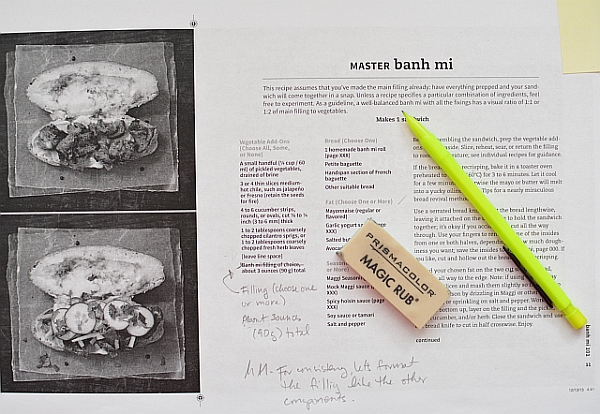 MASTER banh mi
This recipe assumes that you've made the main filling already: have everything prepped and your sand-
wich will come together in a snap. Unless a recipe specifies a particular combination of ingredients, feel
free to experiment. As a guideline, a well-balanced banh mi with all the fixings has a visual ratio of 1:1 or
1:2 of main filling to vegetables.
Makes 1 sandwich
Vegetable Add-Ons
(Choose All, Some,
or None)
A small handful (¼ cup / 60
ml) of pickled vegetables,
drained of brine
3 or 4 thin slices medium-
hot chile, such as jalapeño
or fresno (retain the seeds
for fire)
4 to 6 cucumber strips,
rounds, or ovals, cut
inch (3 to 6 mm) thick
1 to 2 tablespoons coarsely
chopped cilantro sprigs, or
1 to 2 tablespoons coarsely
chopped fresh herb leaves
[leave line space]
Banh mi filling of choice,
about 3 ounces (90 g) total
Filling (choose one
or more)
About 3 ounces
(90g) total
Bread (Choose One)
1 homemade banh mi roll
(page XXX)
Petite baguette
Handspan section of French
baguette
Other suitable bread
Fat (Choose One or More)
Mayonnaise (regular or
flavored)
Garlic yogurt
Salted but
Avoc
Seasoning
Maggi Seasoning
Mock Maggi sauce
XXX)
Spicy hoisin sauce (page
XXX)
Soy sauce or tamari
Salt and pepper
bling the sandwich, prep the vegetable add-
side. Slice, reheat, sear, or return the filling
to
ature, see individual recipes for guidance.
If the brea
bake it in a toaster oven
for 3 to 6 minutes. Let it cool
for a few minu
wise the mayo or butter will melt
into a yucky oil
Tips for a nearly miraculous
bread revival meth
Use a serrated bread kni
the bread lengthwise,
leaving it attached on the
ble to hold the sandwich
together; it's okay if you ac
ut all the way
through. Use your fingers to
of the insides
from one or both halves, depend
w much dough-
iness you want; save the insides
page 000. If
you like, cut and hollow out the bread
your chosen fat on the two
all the way to the edge. Note: if using
slices and mash them slightly so
by drizzling in Maggi or other
or sprinkling on salt and pepper. Work
bottom up, layer on the filling and the pick
cucumber, and/or herb. Close the sandwich and use
bread knife to cut in half crosswise. Enjoy.
continued
PRISMACOLOR
MAGIC RUB
For consistency, lets format
the filling like the other
components.
banh mi 101